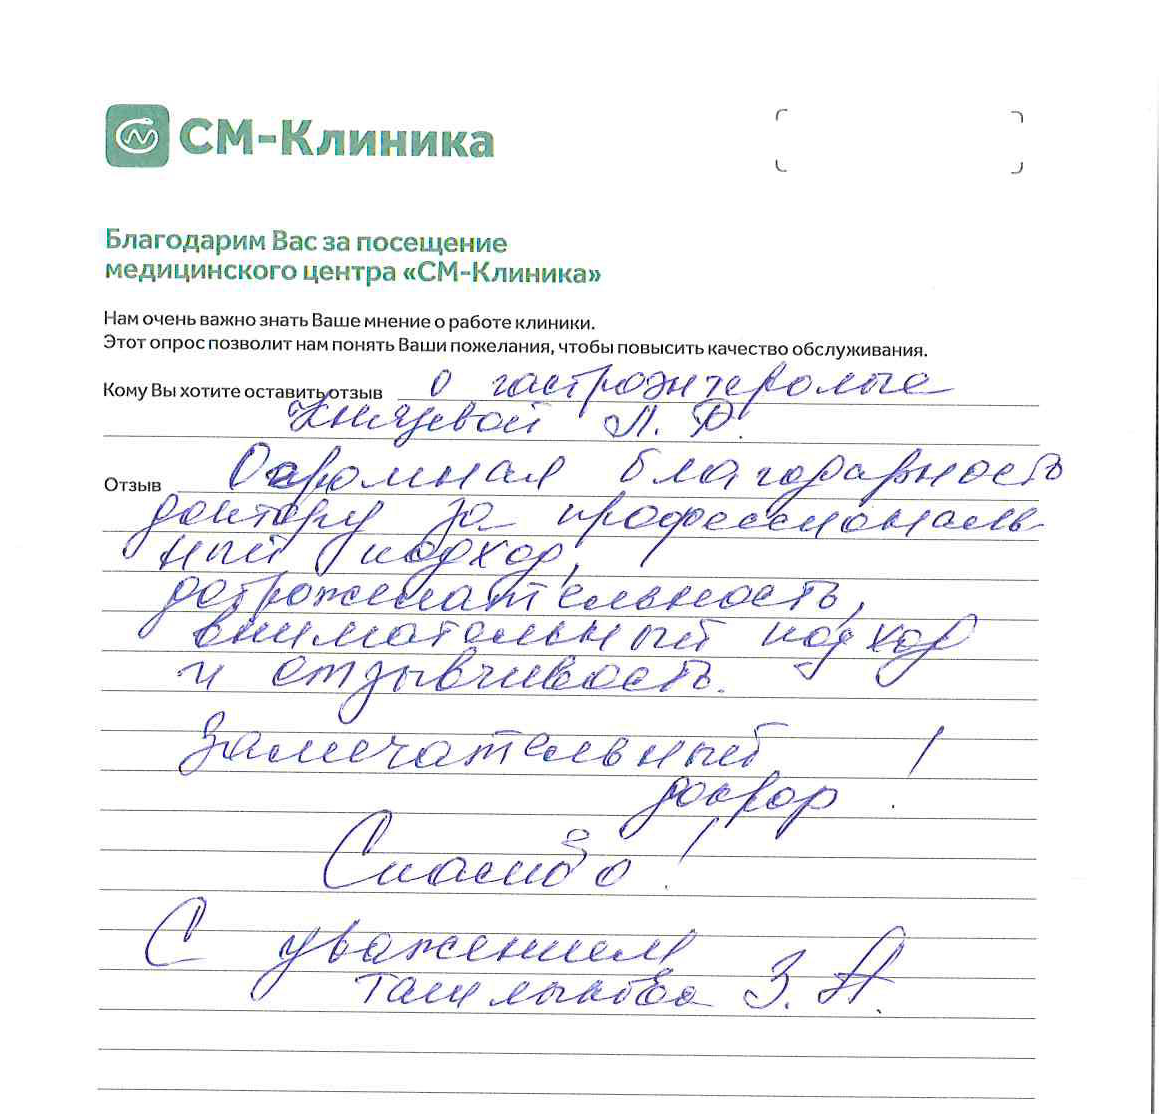 СМ-Клиника
Благодарим Вас за посещение
медицинского центра «СМ-Клиника»
Нам очень важно знать Ваше мнение о работе клиники.
Этот опрос позволит нам понять Ваши пожелания, чтобы повысить качество обслуживания.
Кому Вы хотите оставить отзыв о гастроэнтерологе
Князевой Л. Р.
Отзыв Огромная благодарность
доктору за профессиональ-
ный подход,
доброжелательность,
внимательный подход
и отзывчивость.
Замечательный
доктор!
Спасибо!
С уважением
З. А.